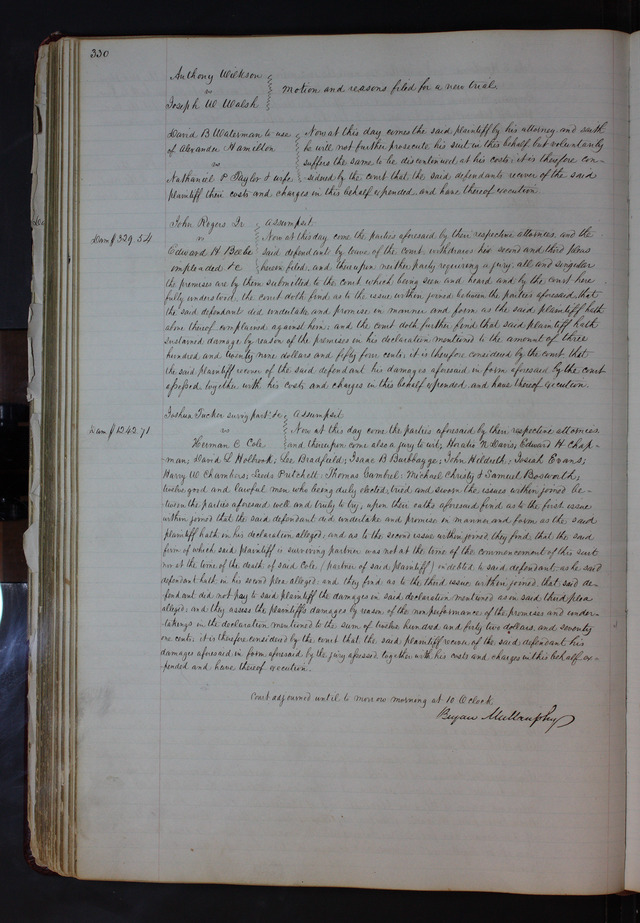 330
Anthony Wilkson
vs
Joseph W Walsh
Motion and reasons filed for a new trial.
David B Waterman to use
of Alexander Hamilton
vs
Nathaniel P Taylor & wife
Now at this day comes the said plaintiff by his attorney and saith
he will not further prosecute his suit in this behalf but voluntarily
suffers the same to be discontinued at his costs; it is therefore con-
sidered by the court that the said defendants recover of the said
plaintiff their costs and charges in this behalf expended, and have thereof execution
Dam $329.54
John Rogers Jr
vs
Edward H Beebe
impleaded &c
Assumpsit
Now at this day come the parties aforesaid, by their respective attornies, and the
said defendant by leave of the court, withdraws his second and third pleas
herein filed, and thereupon neither party requiring a jury, all and singular
the premises are by them submitted to the court which being seen and heard and by the court here
fully understood, the court doth find as to the issue within joined between the parties aforesaid, that
the said defendant did undertake and promise in manner and form as the said plaintiff hath
above thereof complained against him; and the court doth further find that said plaintiff hath
sustained damage by reason of the premises in his declaration mentioned to the amount of three
hundred and twenty nine dollars and fifty four cents; it is therefore considered by the court that
the said plaintiff recover of the said defendant his damages aforesaid in form aforesaid by the court
assessed, together with his costs and charges in this behalf expended, and have thereof execution.
Dam $1242.71
Joshua Tucker surv'g part. &c
vs
Herman C Cole
Assumpsit
Now at this day come the parties aforesaid by their respective attornies
and thereupon come also a jury to wit; Horatio N Davis; Edward H Chap-
man; David L Holbrook; Lee Bradfield; Isaac B Burbbayge; John Hildreth; Josiah Evans;
Harry W Chambers; Leeds Pritchett; Thomas Gambrel; Michael Christy & Samuel Bosworth;
twelve good and lawful men who being duly elected, tried and sworn the issues within joined be-
tween the parties aforesaid well and truly to try, upon their oaths aforesaid find as to the first issue
within joined that the said defendant did undertake and promise in manner and form as the said
plaintiff hath in his declaration alleged; and as to the second issue within joined they find, that the said
firm of which said plaintiff is surviving partner was not at the time of the commencement of this suit
nor at the time of the death of said Cole (partner of said plaintiff) indebted to said defendant as he said
defendant hath in his second plea alleged; and they find as to the third issue within joined, that said de-
fendant did not pay to said plaintiff the damages in said declaration mentioned as in said third plea
alleged; and they assess the plaintiffs damages by reason of the nonperformance of the promises and under-
takings in the declaration mentioned to the sum of twelve hundred and forty two dollars and seventy
one cents; it is therefore considered by the court that the said plaintiff recover of the said defendant his
damages aforesaid in form aforesaid by the jury assessed together with his costs and charges in this behalf ex-
pended and have thereof execution.
Court adjourned until to morrow morning at 10 O'clock
Bryan Mullanphy